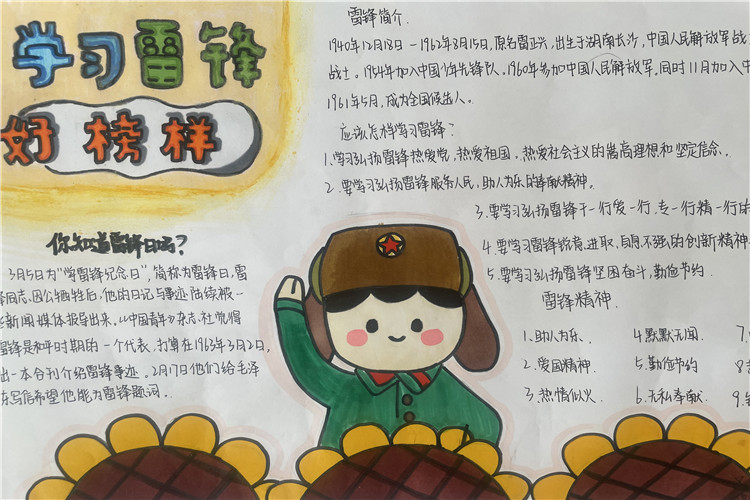 学习雷锋
好榜样
雷锋简介.
1940年12月18日-1962年8月15日,原名雷正兴,出生于湖南长沙,中国人民解放军战
战士。1954年加入中国少年先锋队。1960年参加中国人民解放军,同时11月加入中
1961年5月,成为全国候选人。
应该怎样学习雷锋?
1.学习弘扬雷锋热爱党,热爱祖国,热爱社会主义的崇高理想和坚定信念.
2.要学习弘扬雷锋服务人民,助人为乐的奉献精神。
3.要学习弘扬雷锋干一行爱一行,专一行精一行的
4.要学习雷锋锐意,进取,自息不强的创新精神
5.要学习弘扬雷锋坚困奋斗,勤俭节约.
你知道雷锋日吗?
3月5日为"学雷锋纪念日",简称为雷锋日,雷
锋同志,因公牺牲后,他的日记与事迹陆续被一
些新闻媒体报导出来,《中国青年》杂志社觉得
雷锋是和平时期的一个代表,打算在1963年3月2日,
出一本合刊介绍雷锋事迹。2月17日他们给毛泽
东写信希望他能为雷锋题词。
雷锋精神.
1.助人为乐.
2.爱国精神.
3.热情似火.
4默默无闻.
5.勤俭节约
6.无私奉献.
7.
8
9.